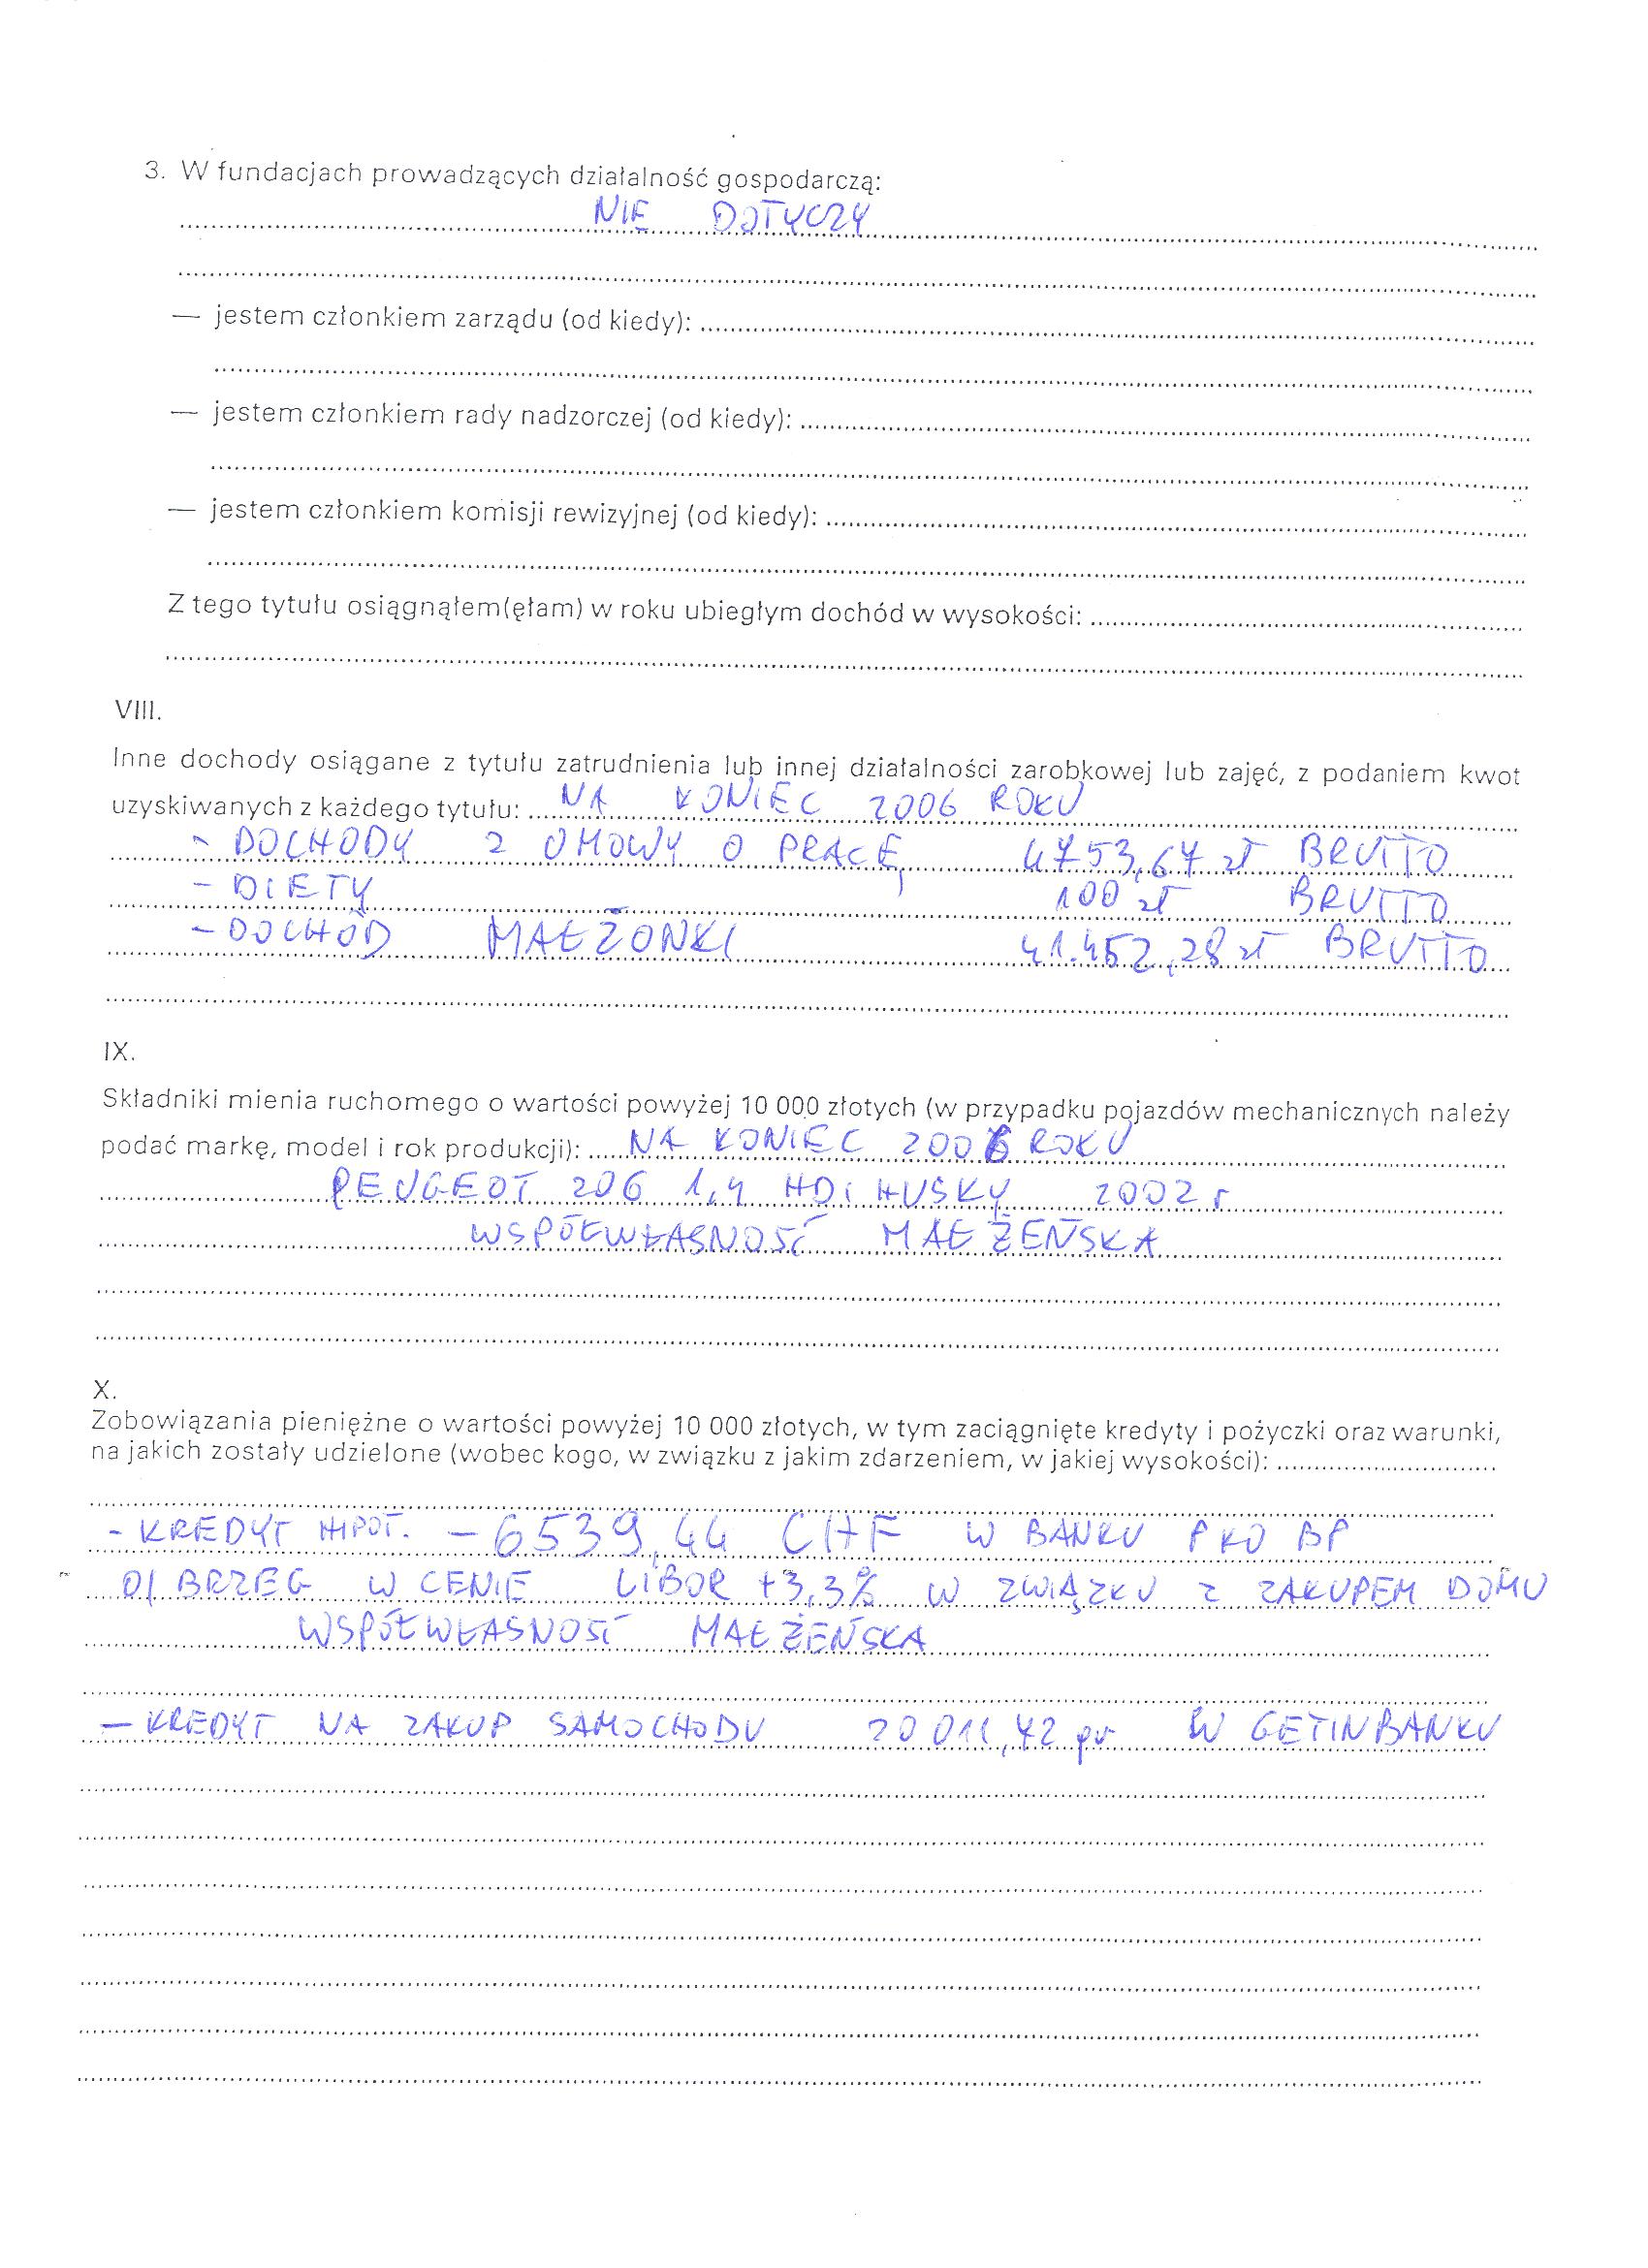 3. W fundacjach prowadzących działalność gospodarczą:
NIE DOTYCZY
— jestem członkiem zarządu (od kiedy):
— jestem członkiem rady nadzorczej (od kiedy):
— jestem członkiem komisji rewizyjnej (od kiedy):
Z tego tytułu osiągnąłem(ęłam) w roku ubiegłym dochód w wysokości:
VIII.
Inne dochody osiągane z tytułu zatrudnienia lub innej działalności zarobkowej lub zajęć, z podaniem kwot
uzyskiwanych z każdego tytułu: NA KONIEC 2006 ROKU
- DOCHODY Z UMOWY O PRACĘ 4753,67 zł BRUTTO
- DIETY 100 zł BRUTTO
- DOCHÓD MAŁŻONKI 41.452,28 zł BRUTTO
IX.
Składniki mienia ruchomego o wartości powyżej 10 000 złotych (w przypadku pojazdów mechanicznych należy
podać markę, model i rok produkcji): NA KONIEC 2006 ROKU
PEUGEOT 206 1,4 HDi HUSKY 2002 r
WSPÓŁWŁASNOŚĆ MAŁŻEŃSKA
X.
Zobowiązania pieniężne o wartości powyżej 10 000 złotych, w tym zaciągnięte kredyty i pożyczki oraz warunki,
na jakich zostały udzielone (wobec kogo, w związku z jakim zdarzeniem, w jakiej wysokości):
- KREDYT HIPOT. - 6539,44 CHF W BANKU PKO BP
O/ BRZEG W CENIE LIBOR +3,3% W ZWIĄZKU Z ZAKUPEM DOMU
WSPÓŁWŁASNOŚĆ MAŁŻEŃSKA
- KREDYT NA ZAKUP SAMOCHODU 20 011,42 W GETINBANKU